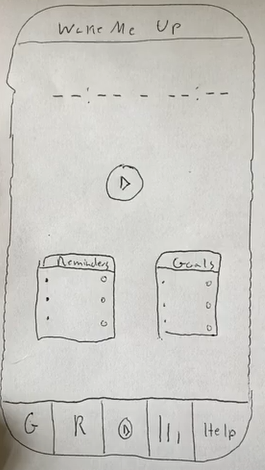 Wake Me Up
--:-- - --:--
Reminders
Goals
G R Help